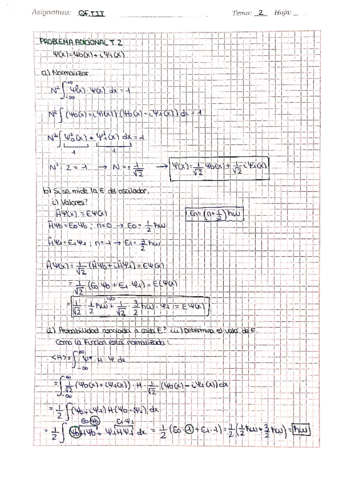 Asignatura: QF.III Tema: 2 Hoja:
PROBLEMA ADICIONAL T.2
Ψ(x) = Ψ0(x) + iΨ1(x)
a) Normalizar
N² ∫ Ψ*(x)·Ψ(x) dx = 1
N² ∫ (Ψ0(x) + iΨ1(x)) (Ψ0(x) - iΨ1(x)) dx = 1
N² ∫ Ψ0²(x) + Ψ1²(x) dx = 1
1 1
N²·2 = 1 → N = 1/√2 → Ψ(x) = 1/√2 Ψ0(x) + 1/√2 iΨ1(x)
b) Si se mide la E del oscilador,
i) Valores?
ĤΨ(x) = EΨ(x) En = (n + 1/2) ħω
ĤΨ0 = E0Ψ0; n=0 → E0 = 1/2 ħω
ĤΨ1 = E1Ψ1; n=1 → E1 = 3/2 ħω
ĤΨ(x) = 1/√2 (ĤΨ0 + iĤΨ1) = EΨ(x)
= 1/√2 (E0Ψ0 + E1·Ψ1) = E(Ψ(x)
= 1/√2 · 1/2 ħω Ψ0 + 1/√2 · 3/2 ħω · Ψ1 = EΨ(x)
ii) Probabilidad asociada a cada E? iii) Determina el valor de E.
Como la función está normalizada:
<H> = ∫ Ψ* H · Ψ dx
= ∫ 1/√2 (Ψ0(x) + iΨ1(x)) · H · 1/√2 (Ψ0(x) - iΨ1(x)) dx
= 1/2 ∫ (Ψ0 + iΨ1) H (Ψ0 - iΨ1) dx
E0Ψ0 E1Ψ1
= 1/2 ∫ Ψ0HΨ0 + Ψ1HΨ1 dx = 1/2 (E0·1 + E1·1) = 1/2 (1/2 ħω + 3/2 ħω) = ħω